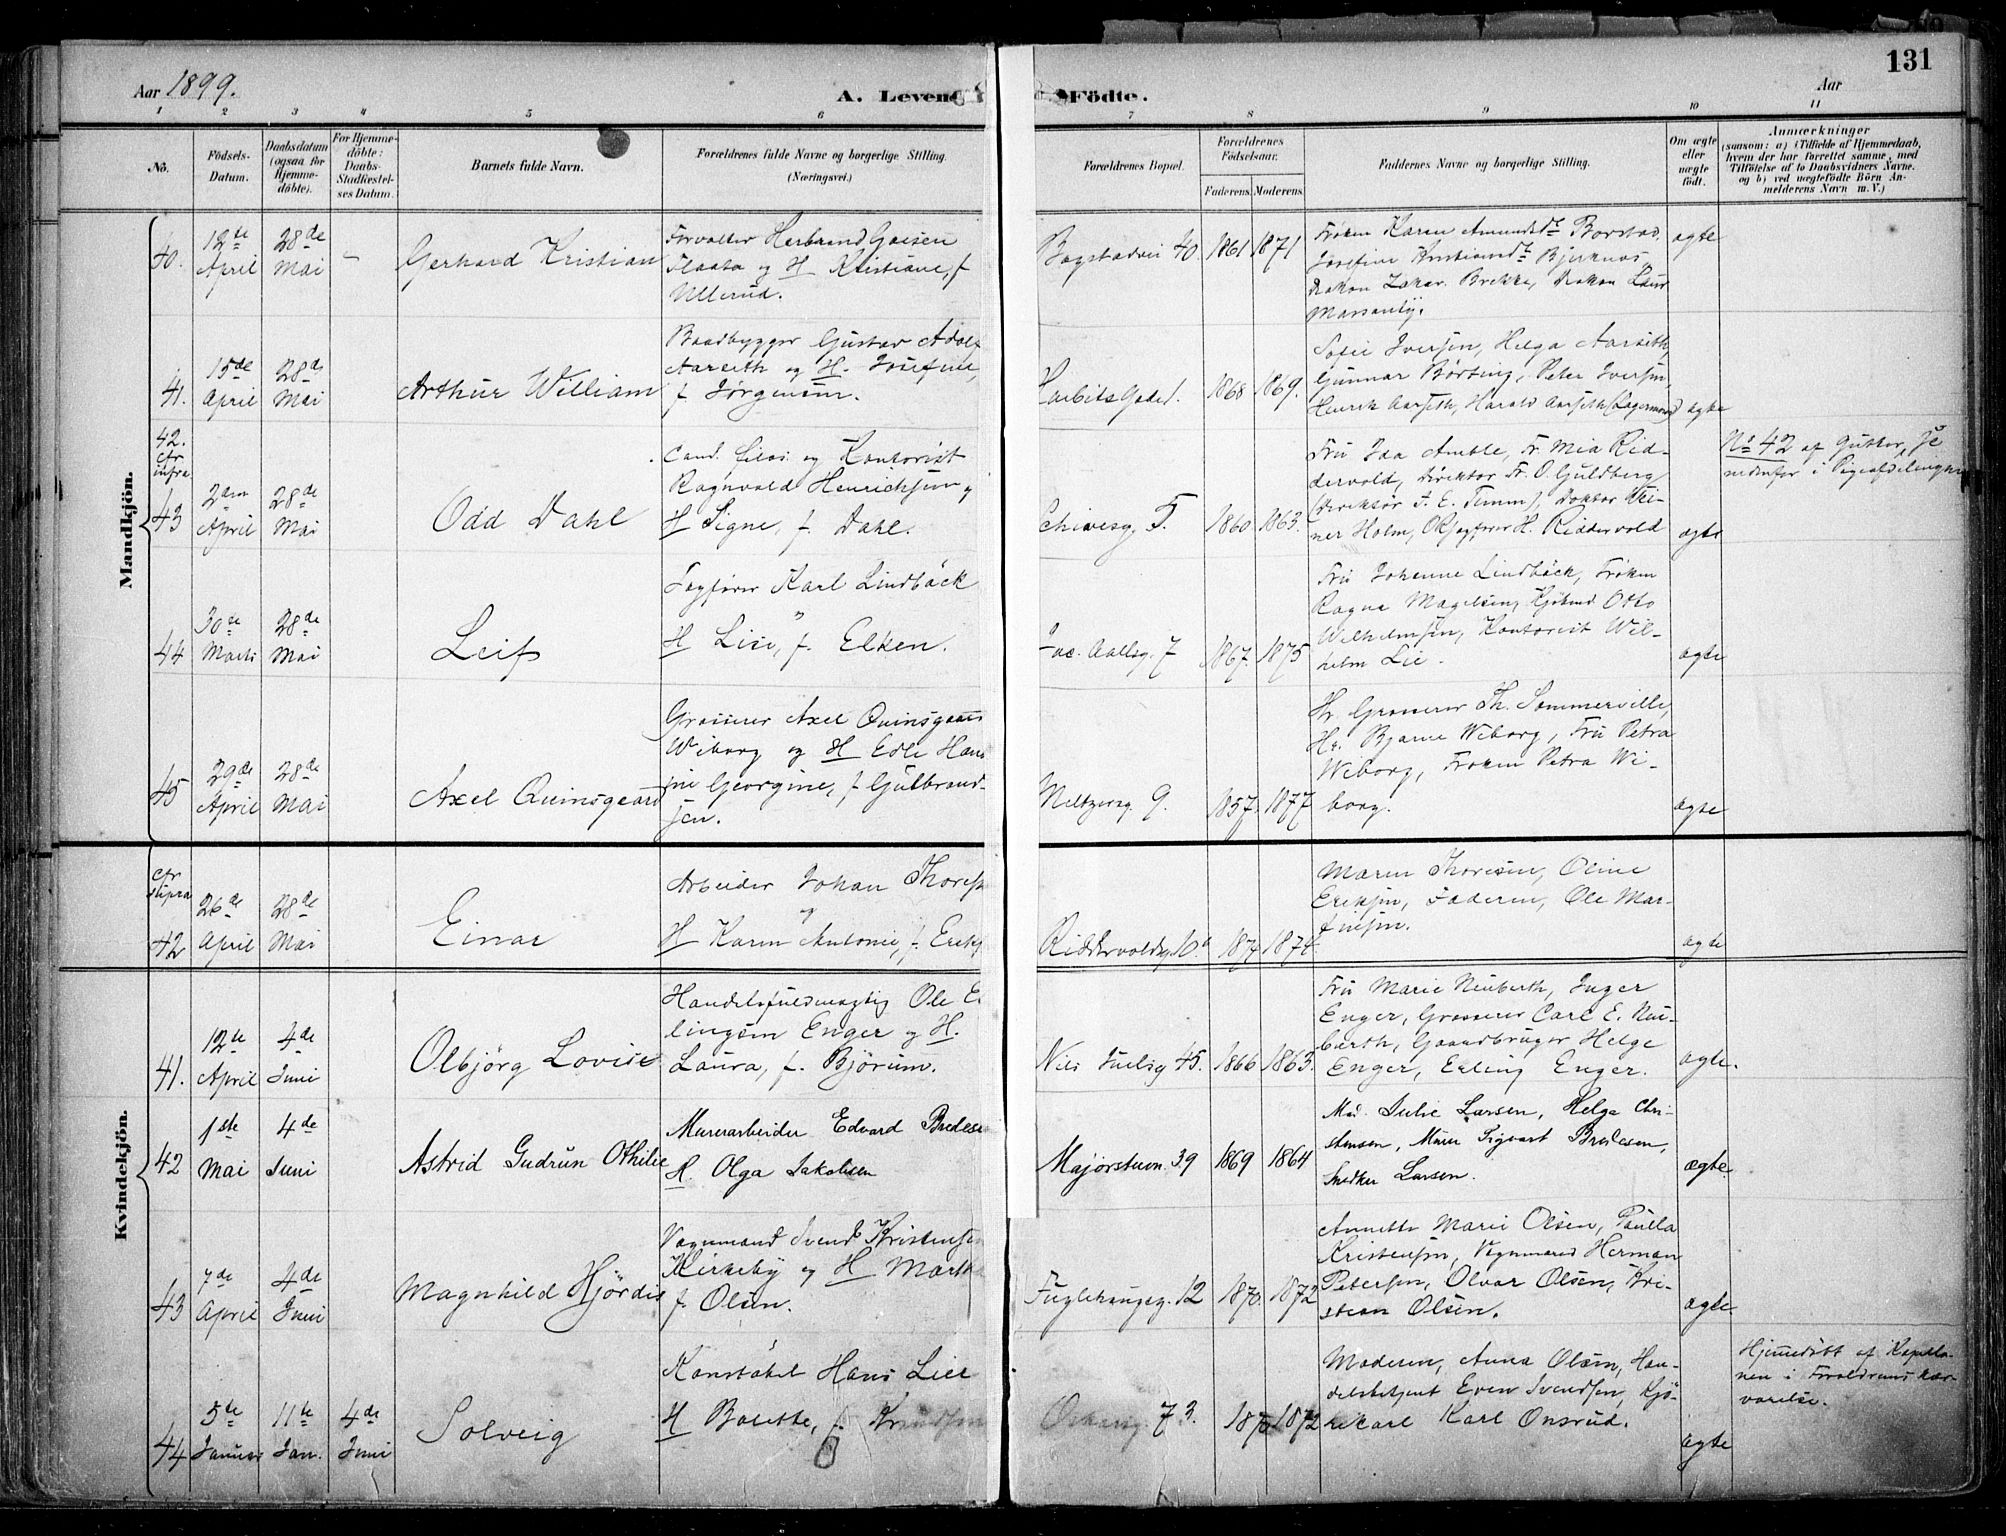 131
Aar 1899.
A. Levende Födte.
Aar
1 2 3 4 5 6 7 8 9 10 11
No.
Födsels-Datum.
Daabsdatum (ogsaa for Hjemme-döbte).
For Hjemme-döbte: Daabs-Stadfæstel-ses Datum.
Barnets fulde Navn.
Forældrenes fulde Navne og borgerlige Stilling.
(Næringsvei.)
Forældrenes Bopæl.
Forældrenes Födselsaar.
Faderens. Moderens.
Faddernes Navne og borgerlige Stilling.
Om ægte eller uægte födt.
Anmærkninger
(saasom: a) i Tilfælde af Hjemmedaab,
hvem der har forrettet samme, med
Tilföielse af to Daabsvidners Navne.
og b) ved uægtefödte Börn An-
melderens Navn m. V.)
Mandkjön.
40. 12te April 28de Mai – Gerhard Kristian
Forvalter Herbrand
Flaata og H Kristiane, f
Ullerud.
Bogstadvei 40. 1861 1871
Frøken Karen Amundsdt Borstad,
Brekke, Haakon
ægte
41. 15de April 28de Mai Arthur William
Baadbygger Gustav Adolf
Aarseth og H. Josefine,
f Jørgensen.
Harbitz Gade 1. 1868 1869.
Sofie Iversen, Helga Aarseth,
Gunnar Børting, Peter Iversen,
Henrik Aarseth, Harald Aarseth (Lagermand)
ægte
42. cfr infra
No 42 af Gutter, se
nedenfor i Pigeafdelingen
43 2den April 28de Mai Odd Dahl
Cand. filos. og Kontorist
Ragnvald Henrichsen og
H Signe, f. Dahl.
Schivesg. 5. 1860 1863.
Fru Ida Amble, Fr. Mia Rid-
dervold, Direktør Fr. O. Guldberg
(Direktør J. E. Timm), Doktor
Holm, H. Riddervold
ægte
44 30te Marts 28de Mai Leif
Fogfører Karl Lindbäck
og
H Lise, f. Elken.
Jac. Aallsg. 7 1867. 1875
Fru Johanne Lindbäck, Frøken
Ragna Magelsen, Kjøbmd Otto
Wilhelmsen, Kontorist Wil-
helm Lie.
ægte
45 29de April 28de Mai Axel Quinsgaard
Grosserer Axel Quinsgaard
Wiborg og H Edle Han
sine Georgine, f Gulbrand-
sen.
Meltzersg. 9. 1857. 1877
Hr Grosserer Th. Sommerville,
Hr. Bjarne Wiborg, Fru Petra
Wiborg, Frøken Petra Wi-
borg.
ægte
cfr supra
42 26de April 28de Mai Einar
Arbeider Johan Thoresen
og
H Karen Antonie, f. Eriks
Riddervoldsg. 10b 1874 1874.
Maren Thoresen, Oline
Eriksen, Faderen, Ole Mar-
tinsen.
ægte
Kvindekjön.
41. 12te April 4de Juni Olbjörg Lovise
Handelsfuldmægtig Ole E
lingsen Enger og H.
Laura, f. Bjørum.
Nils Juelsg 45. 1866 1863.
Fru Marie Neuberth, Inger
Enger, Grosserer Carl E. Neu-
berth, Gaardbruger Helge
Enger, Erling Enger.
ægte.
42 1ste Mai 4de Juni Astrid Gudrun Othilie
Murerarbeider Edvard Bredese
H. Olga Jakobsen
Majorstuen. 39 1869 1864
Mad. Julie Larsen, Helga Chri-
stensen, Murer Sigvart Bredesen,
Snedker Larsen.
ægte.
43 7de April 4de Juni Magnhild Hjördis
Vognmand Svend Kristensen
Kirkeby og H Marth
f. Olsen.
Fuglehaugsg. 12 1870. 1872
Annette Marie Olsen, Paulla
Kristensen, Vognmand Herman
Petersen, Olvar Olsen, Kri-
stian Olsen.
ægte
44 5te Januar 11te Jan. 4de Juni Solveig
Konstabel Hans Lier
H Bolette, f. Knudsen
73. 1870 1872
Moderen, Anna Olsen, Han-
delsbetjent Even Svendsen, Kjö-
rekarl Karl Onsrud.
ægte
Hjemmedöbt af Kapella-
nen i Forældrenes Nær-
værelse.